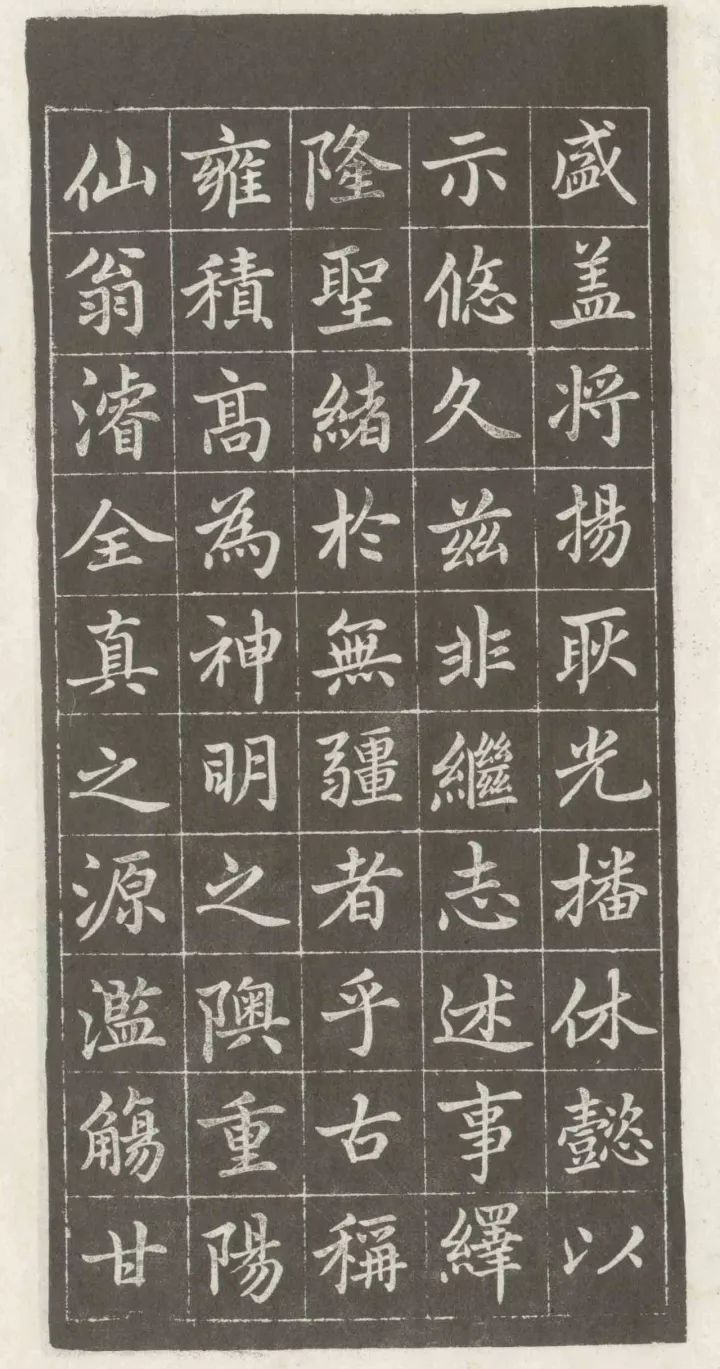 盛盖将揚耿光播休懿以
示悠久兹非繼志述事繹
隆聖緒於無疆者乎古稱
雍積髙為神明之隩重陽
仙翁濬全真之源濫觴甘